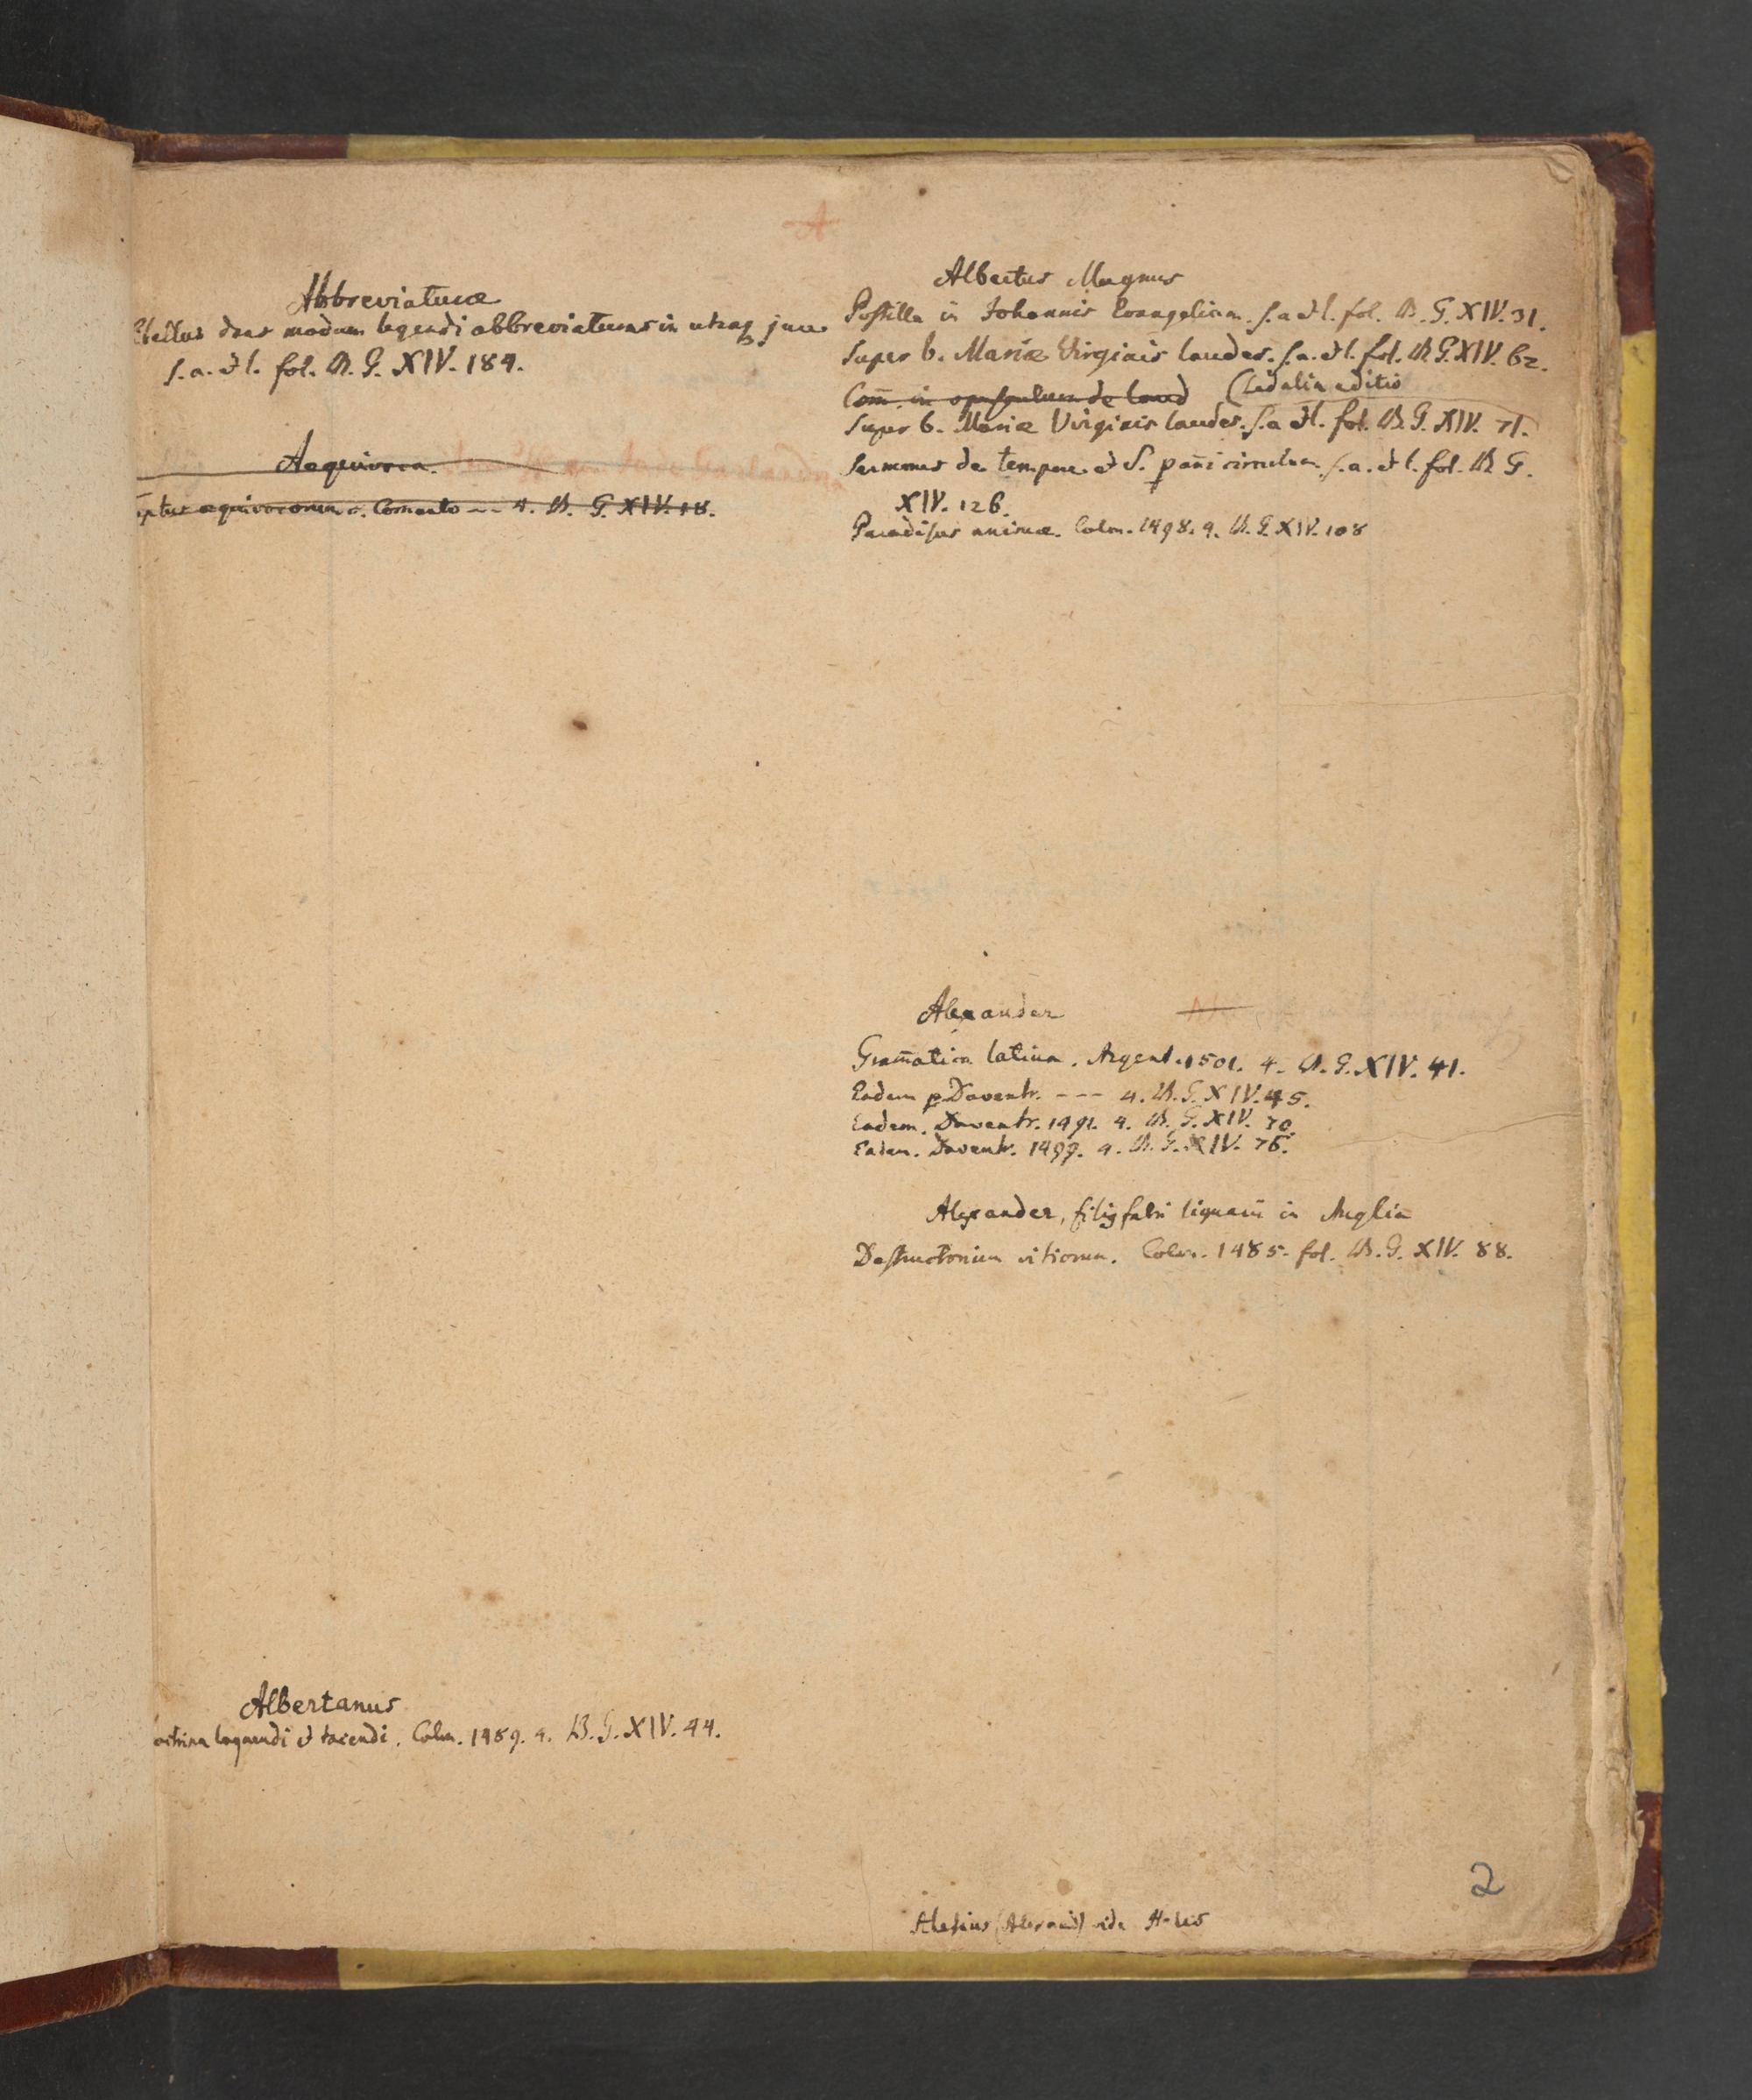 A
Abbreviaturae
dans modum legendi abbreviaturas in utroq jure
s. a. et l. fol. B. G. XIV. 184.
Aequivoca.
aequivocorum c. Comento --- 4. B. G. XIV. 18.
Albertanus
octrina loquendi et tacendi. Colon. 1489. 4. B. G. XIV. 44.
Albertus Magnus
Postilla in Johannis Evangelium. s. a et l. fol. B. G. XIV. 31.
Super b. Mariae Virginis laudes. s. a. et l. fol. B. G. XIV. 62.
Com̄. in opusculum de laud (alia editio
Super b. Mariae Virginis laudes. s. a et l. fol. B. G. XIV. 71.
Sermones de tempore et S. p an̄i circulum s. a. et l. fol. B. G.
XIV. 126.
Paradisus animae. Colon. 1498. 4. B. G. XIV. 108
Alexander
Gram̄atica latina. Argent. 1501. 4. B. G. XIV. 41.
Eadem Daventr. --- 4. B. G. XIV. 45.
Eadem. Daventr. 1491. 4. B. G. XIV. 70.
Eadem. Daventr. 1499. 4. B. G. XIV. 76.
Alexander, filiq fabri lignarii in Anglia
Destructorium vitiorum. Colon. 1485. fol. B. G. XIV. 88.
Alesius vide Hales
2